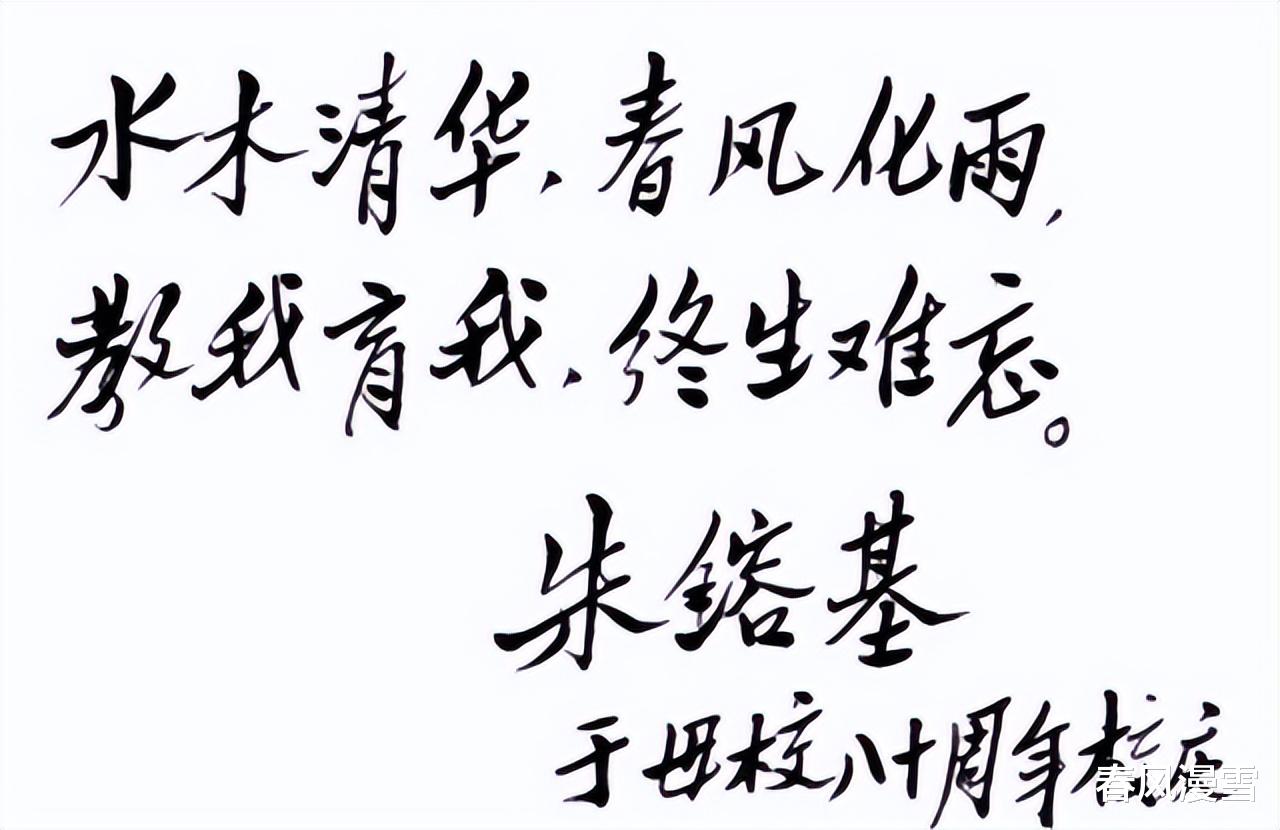 水木清华、春风化雨,
教我育我、终生难忘。
朱镕基
于母校八十周年校庆
春风漫雪